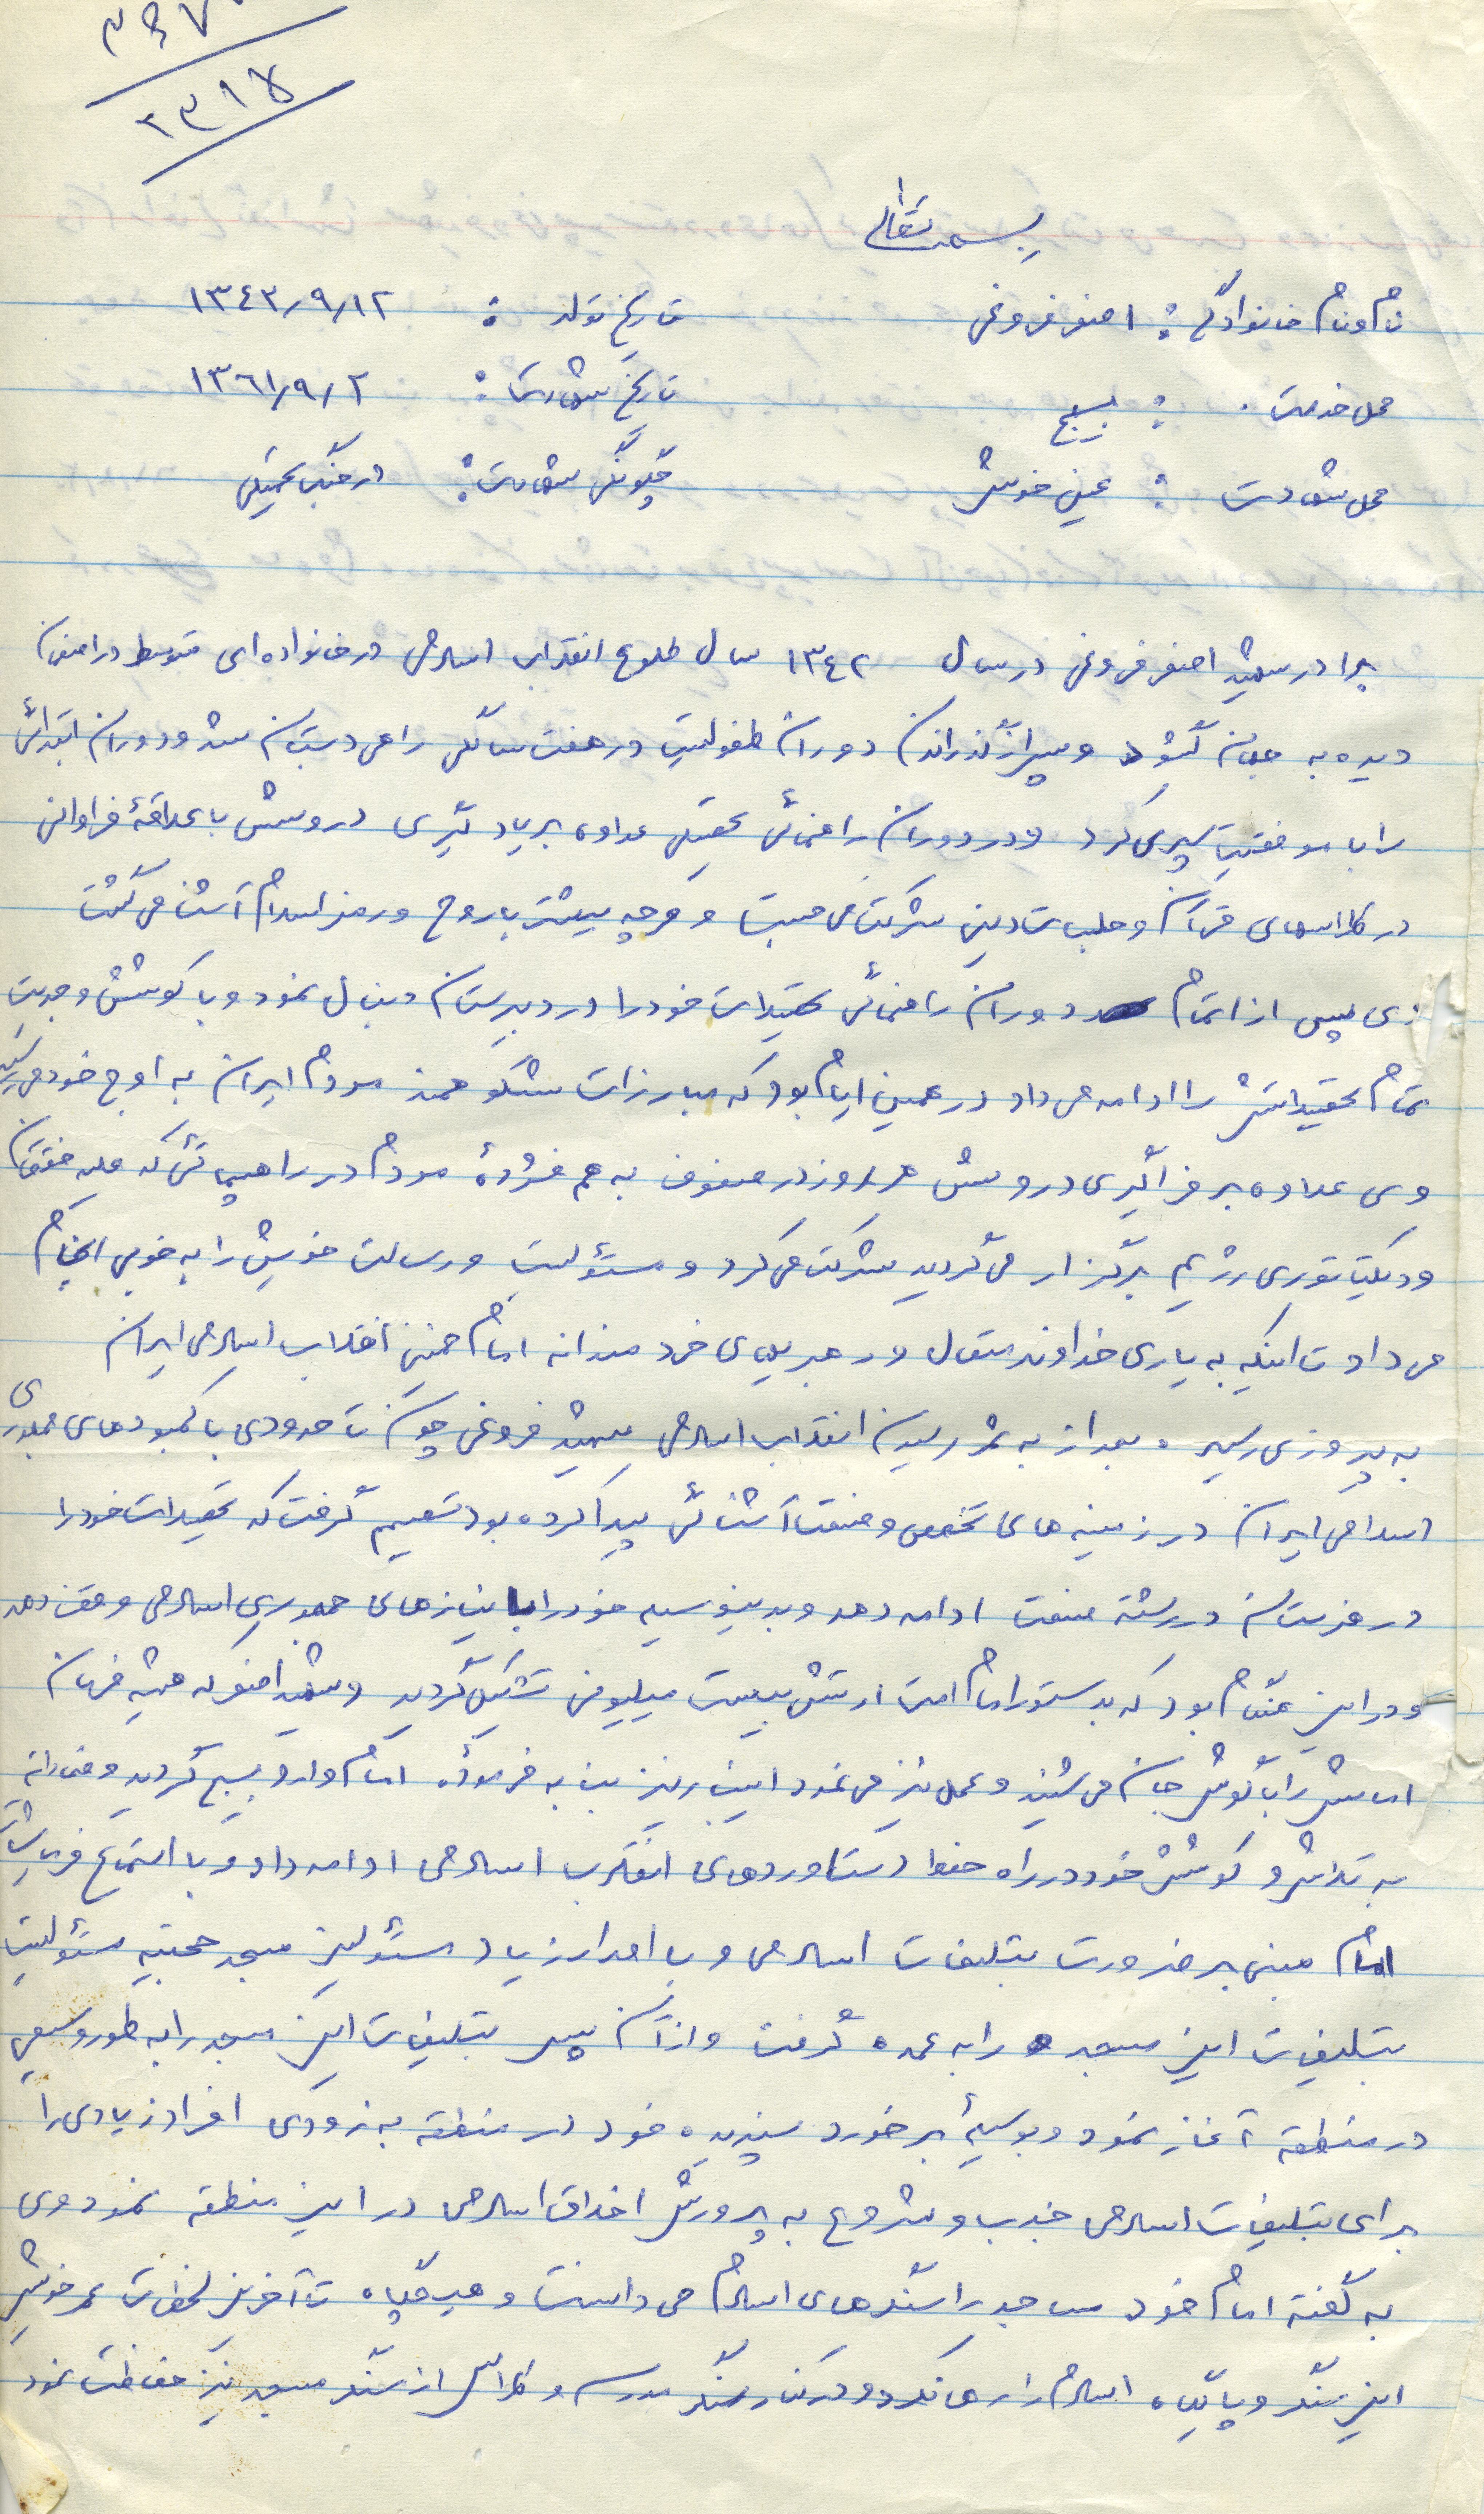 بسمه تعالی
نام و نام خانوادگی : اصغر فروغی تاریخ تولد : ۱۳۴۳/۹/۱۲
محل خدمت : بسیج تاریخ شهادت : ۱۳۶۱/۹/۲
محل شهادت : عین خوش چگونگی شهادت : در جنگ تحمیلی
برادر شهید اصغر فروغی در سال ۱۳۴۲ سال طلوع انقلاب اسلامی در خانواده ای متوسط در اصفهان
دیده به جهان گشود و پس از گذراندن دوران طفولیت در هفت سالگی راهی دبستان شد و دوران ابتدائی
را با موفقیت سپری کرد و در دوران راهنمائی تحصیلی علاوه بر یادگیری دروسش با علاقهٔ فراوانی
در کلاسهای قرآن و جلسات دینی شرکت می جست و هرچه بیشتر با روح و رمز اسلام آشنا می گشت
وی پس از اتمام دوران راهنمائی تحصیلات خود را در دبیرستان دنبال نمود و با کوشش و جدیت
تمام تحصیلاتش را ادامه می داد در همین ایام بود که مبارزات شکوهمند مردم ایران به اوج خود می رسید
وی علاوه بر فراگیری دروسش هر روز در صفوف به هم فشردهٔ مردم در راهپیمائی که علیه خفقان
و دیکتاتوری رژیم برگزار می گردید شرکت می کرد و مسئولیت و رسالت خویش را به خوبی انجام
می داد تا اینکه به یاری خداوند متعال و رهبریهای خردمندانه امام خمینی انقلاب اسلامی ایران
به پیروزی رسید . بعد از به ثمر رسیدن انقلاب اسلامی شهید فروغی چون تا حدودی با کمبودهای جمهوری
اسلامی ایران در زمینه های تخصصی و صنعت آشنائی پیدا کرده بود تصمیم گرفت که تحصیلات خود را
در هنرستان در رشته صنعت ادامه دهد و بدینوسیله خود را با نیازهای جمهوری اسلامی وفق دهد
و در این هنگام بود که بدستور امام امت ارتش بیست میلیونی تشکیل گردید و شهید اصغر که همیشه فرمان
امامش را با گوش جان می شنید و عمل نیز می نمود این بار نیز بنا به فرمودهٔ امام وارد بسیج گردید و
به تلاش و کوشش خود در راه حفظ دستاوردهای انقلاب اسلامی ادامه داد و با استماع فرمایشات
امام مبنی بر ضرورت تبلیغات اسلامی و با اصرار زیاد مسئولین مسجد حجتیه مسئولیت
تبلیغات این مسجد را به عهده گرفت و از آن پس تبلیغات این مسجد را به طور وسیعی
در منطقه آغاز نمود و بوسیلهٔ برخورد پسندیده خود در منطقه به زودی افراد زیادی را
برای تبلیغات اسلامی جذب و شروع به پرورش اخلاق اسلامی در این منطقه نمود وی
به گفته امام خود مساجد را سنگرهای اسلام می دانست و هیچگاه تا آخرین لحظات عمر خویش
این سنگر و پایگاه اسلام را رها نکرد و در کنار سنگر مدرسه و کلاس از سنگر مسجد نیز حفاظت نمود